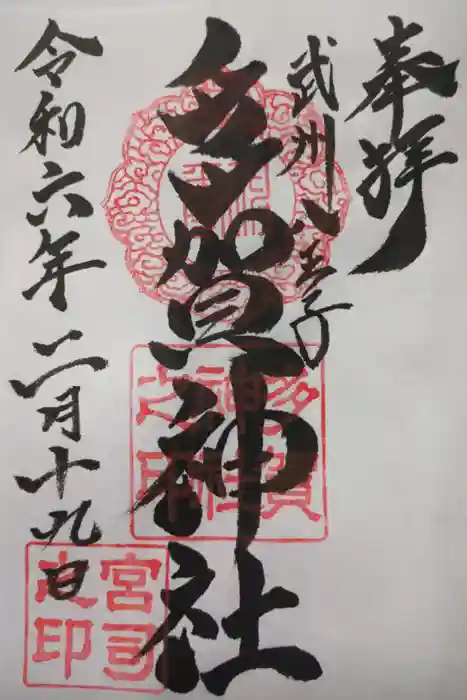 奉拝
武州八王子
多賀神社
令和六年二月十九日
多賀
神社
之印
宮司
之印